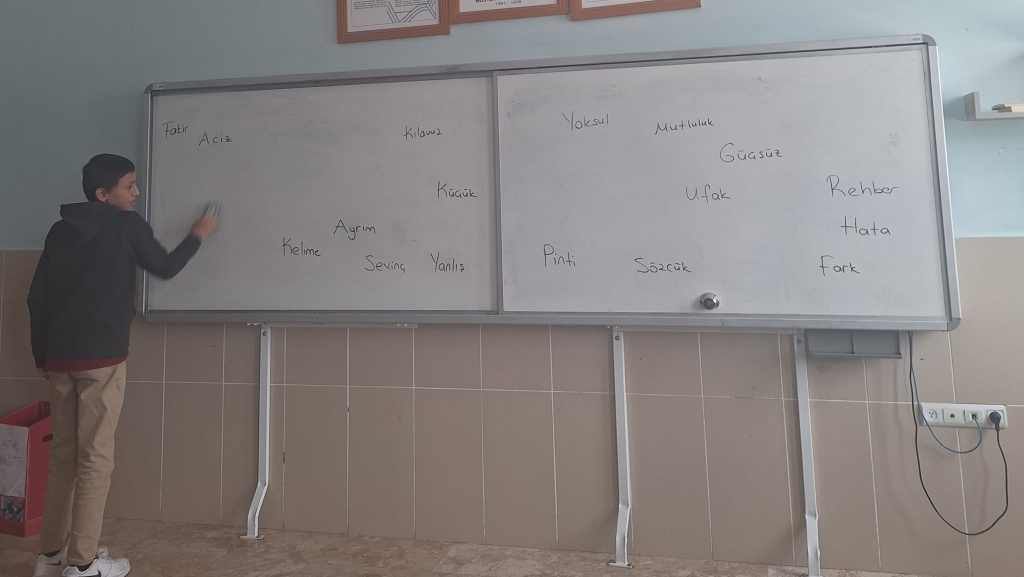 Fakir
Aciz
Kılavuz
Küçük
Ayrım
Kelime
Sevinç
Yanlış
Yoksul
Mutluluk
Güçsüz
Ufak
Rehber
Hata
Pinti
Sözcük
Fark
1881 - 1938